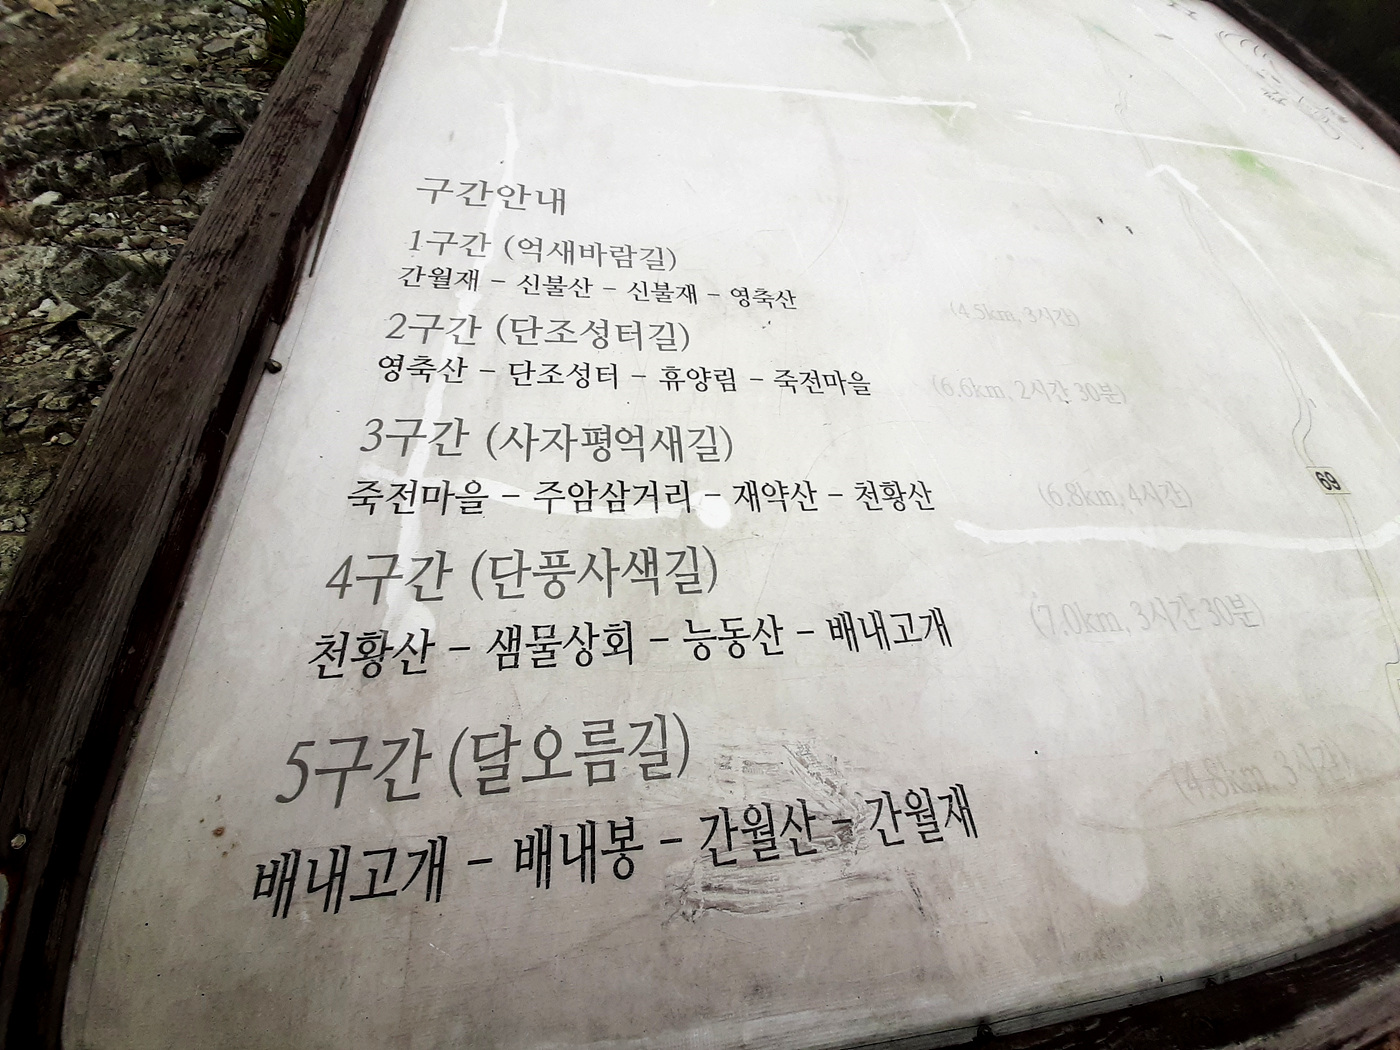 구간안내
1구간 (억새바람길)
간월재 - 신불산 - 신불재 - 영축산 (4.5km, 3시간)
2구간 (단조성터길)
영축산 - 단조성터 - 휴양림 - 죽전마을 (6.6km, 2시간 30분)
3구간 (사자평억새길)
죽전마을 - 주암삼거리 - 재약산 - 천황산 (6.8km, 4시간)
4구간 (단풍사색길)
천황산 - 샘물상회 - 능동산 - 배내고개 (7.0km, 3시간 30분)
5구간 (달오름길)
배내고개 - 배내봉 - 간월산 - 간월재 (4.8km, 3시간)
69